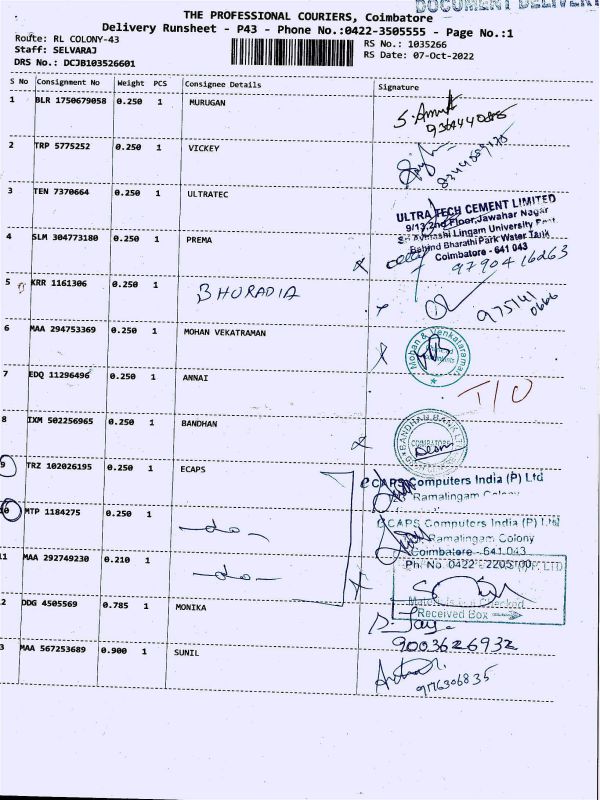 DOCUMENT DELIVERY
THE PROFESSIONAL COURIERS, Coimbatore
Delivery Runsheet - P43 - Phone No.:0422-3505555 - Page No.:1
Route: RL COLONY-43
RS No.: 1035266
Staff: SELVARAJ
RS Date: 07-Oct-2022
DRS No.: DCJB103526601
S No Consignment No Weight PCS Consignee Details Signature
1 BLR 1750679058 0.250 1 MURUGAN
2 TRP 5775252 0.250 1 VICKEY
3 TEN 7370664 0.250 1 ULTRATEC
ULTRA TECH CEMENT LIMITED
9/13, 2nd Floor, Jawahar Nagar
Sri Avinashi Lingam University Post
Behind Bharathi Park Water Tank
Coimbatore - 641 043
4 SLM 304773180 0.250 1 PREMA
9790416263
5 KRR 1161306 0.250 1 BHURADIA
975141
0666
6 MAA 294753369 0.250 1 MOHAN VEKATRAMAN
Mohan & Venkataraman
7 EDQ 11296496 0.250 1 ANNAI
T/O
8 IXM 502256965 0.250 1 BANDHAN
BANDHAN BANK LTD
COIMBATORE
9 TRZ 102026195 0.250 1 ECAPS
eCAPS Computers India (P) Ltd
Ramalingam Colony
10 MTP 1184275 0.250 1 -do-
eCAPS Computers India (P) Ltd
Ramalingam Colony
Coimbatore - 641 043
Ph: No. 0422 - 2205100
11 MAA 292749230 0.210 1 -do-
(P) LTD
Received Box
12 DDG 4505569 0.785 1 MONIKA
S. Jay
9003626932
13 MAA 567253689 0.900 1 SUNIL
9176306835